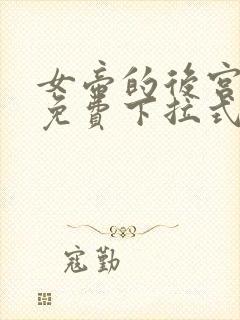 女帝的後宮
免費下拉式
寇勤